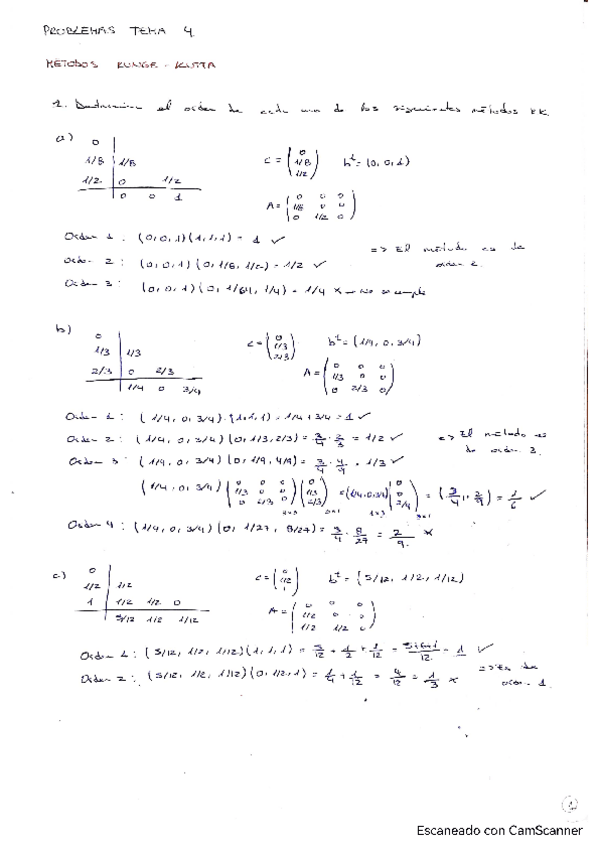 PROBLEMAS TEMA 4
METODOS RUNGE-KUTTA
1. Determina el orden de cada uno de los siguientes métodos RK.
a)
0
1/8 | 1/8
1/2 | 0 1/2
0 0 1
c = (0 1/8 1/2) b^t = (0,0,1)
A = (0 0 0 / 1/8 0 0 / 0 1/2 0)
Orden 1: (0,0,1)(1,1,1) = 1 ✓
Orden 2: (0,0,1)(0,1/8,1/2) = 1/2 ✓
=> El método es de orden 2.
Orden 3: (0,0,1)(0,1/64,1/4) = 1/4 × no se cumple
b)
0
1/3 | 1/3
2/3 | 0 2/3
1/4 0 3/4
c = (0 1/3 2/3) b^t = (1/4, 0, 3/4)
A = (0 0 0 / 1/3 0 0 / 0 2/3 0)
Orden 1: (1/4, 0, 3/4)·(1,1,1) = 1/4 + 3/4 = 1 ✓
Orden 2: (1/4, 0, 3/4)(0, 1/3, 2/3) = 3/4 · 2/3 = 1/2 ✓
=> El método es de orden 3.
Orden 3: (1/4, 0, 3/4)(0, 1/9, 4/9) = 3/4 · 4/9 = 1/3 ✓
(1/4, 0, 3/4)(0 0 0 / 1/3 0 0 / 0 2/3 0)(0 1/3 2/3) = (1/4, 0, 3/4)(0 0 2/9) = (3/4 · 2/9) = 1/6 ✓
Orden 4: (1/4, 0, 3/4)(0, 1/27, 8/27) = 3/4 · 8/27 = 2/9 ×
c)
0
1/2 | 1/2
1 | 1/2 1/2 0
5/12 1/2 1/12
c = (0 1/2 1) b^t = (5/12, 1/2, 1/12)
A = (0 0 0 / 1/2 0 0 / 1/2 1/2 0)
Orden 1: (5/12, 1/2, 1/12)(1,1,1) = 5/12 + 1/2 + 1/12 = 5+6+1/12 = 1 ✓
Orden 2: (5/12, 1/2, 1/12)(0, 1/2, 1) = 1/4 + 1/12 = 4/12 = 1/3 ×
=> Es de orden 1.
1
Escaneado con CamScanner